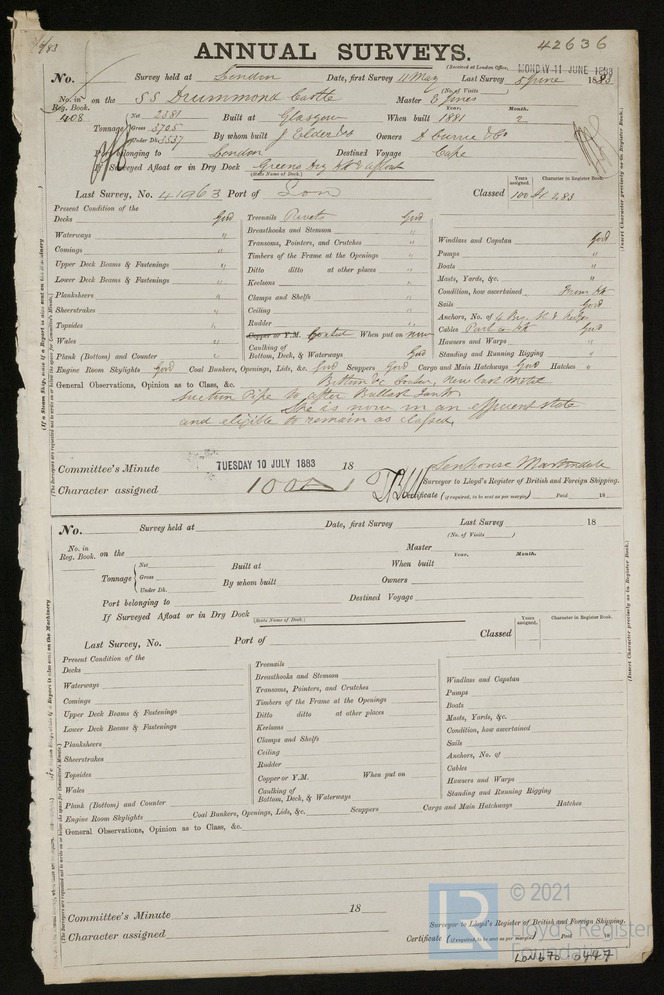 9/83
42636
ANNUAL SURVEYS.
(Received at London Office, MONDAY 11 JUNE 1883
No. Survey held at London Date, first Survey 11 May Last Survey 8 June 1883
(No. of Visits )
No. in Reg. Book. 408 on the SS Drummond Castle Master E Jones
Year. Month.
Tonnage Net 2381 Gross 3705 Under Dk. 3537
Built at Glasgow When built 1881 2
By whom built J Elder & Co Owners D Currie & Co
Port belonging to London Destined Voyage Cape
If Surveyed Afloat or in Dry Dock Greens Dry Dk & afloat
(State Name of Dock.)
Last Survey, No. 41963 Port of Lon Classed
Years assigned. Character in Register Book.
100 A1 2.83
Present Condition of the
Decks Good
Waterways "
Comings "
Upper Deck Beams & Fastenings "
Lower Deck Beams & Fastenings "
Planksheers "
Sheerstrakes "
Topsides "
Wales "
Plank (Bottom) and Counter "
Treenails Rivets Good
Breasthooks and Stemson "
Transoms, Pointers, and Crutches "
Timbers of the Frame at the Openings "
Ditto ditto at other places "
Keelsons "
Clamps and Shelfs "
Ceiling "
Rudder "
Copper or Y.M. Coated When put on now
Caulking of Bottom, Deck, & Waterways Good
Windlass and Capstan Good
Pumps "
Boats "
Masts, Yards, &c. "
Condition, how ascertained From Dk
Sails Good
Anchors, No. of
Cables Good
Hawsers and Warps "
Standing and Running Rigging "
Engine Room Skylights Good Coal Bunkers, Openings, Lids, &c. Good Scuppers Good Cargo and Main Hatchways Good Hatches "
General Observations, Opinion as to Class, &c. Bottom &c New Cast Metal
Suction Pipe to after Ballast Tank
She is now in an efficient state
and eligible to remain as classed.
Committee's Minute TUESDAY 10 JULY 1883 18
Character assigned 100A1
Senhouse Martindale
Surveyor to Lloyd's Register of British and Foreign Shipping.
Certificate (if required, to be sent as per margin) Paid 18
(Insert Character precisely as in Register Book.)
No. Survey held at Date, first Survey Last Survey 18
(No. of Visits )
No. in Reg. Book. on the Master
Year. Month.
Tonnage Net Gross Under Dk.
Built at When built
By whom built Owners
Port belonging to Destined Voyage
If Surveyed Afloat or in Dry Dock
(State Name of Dock.)
Last Survey, No. Port of Classed
Years assigned. Character in Register Book.
Present Condition of the
Decks
Waterways
Comings
Upper Deck Beams & Fastenings
Lower Deck Beams & Fastenings
Planksheers
Sheerstrakes
Topsides
Wales
Plank (Bottom) and Counter
Treenails
Breasthooks and Stemson
Transoms, Pointers, and Crutches
Timbers of the Frame at the Openings
Ditto ditto at other places
Keelsons
Clamps and Shelfs
Ceiling
Rudder
Copper or Y.M. When put on
Caulking of Bottom, Deck, & Waterways
Windlass and Capstan
Pumps
Boats
Masts, Yards, &c.
Condition, how ascertained
Sails
Anchors, No. of
Cables
Hawsers and Warps
Standing and Running Rigging
Engine Room Skylights Coal Bunkers, Openings, Lids, &c. Scuppers Cargo and Main Hatchways Hatches
General Observations, Opinion as to Class, &c.
Committee's Minute 18
Character assigned
Surveyor to Lloyd's Register of British and Foreign Shipping.
Certificate (if required, to be sent as per margin) Paid 18
(Insert Character precisely as in Register Book.)
LR © 2021
Lloyd's Register
Foundation
LON670-0447